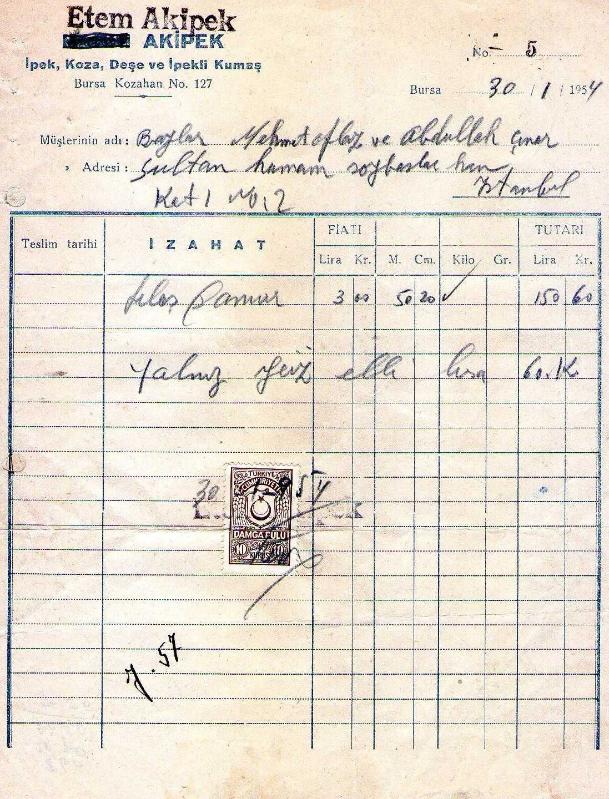 Etem Akipek
AKİPEK
İpek, Koza, Deşe ve İpekli Kumaş
Bursa Kozahan No. 127
No. 5
Bursa 30 / 1 / 1954
Müşterinin adı: Baylar Mehmet ve Abdullah
» Adresi: Sultan hamam han
Kat 1 No. 2 İstanbul
Teslim tarihi İZAHAT FİATI TUTARI
Lira Kr. M. Cm. Kilo Gr. Lira Kr.
3 00 50 20 150 60
Yalnız yüz elli lira 60.K.
TÜRKİYE
CUMHURİYETİ
30 1 954
DAMGA PULU
10 10
57